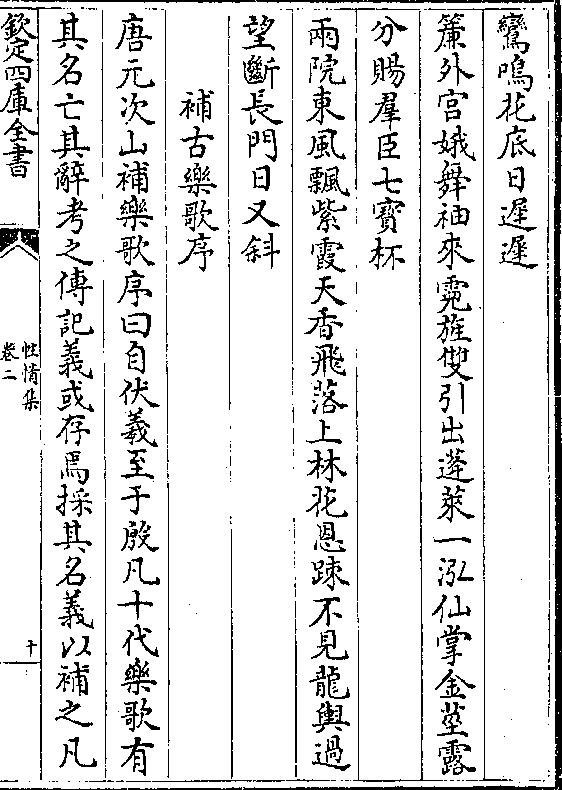 鸞鳴花底日遲遲
簾外宮娥舞袖來霓旌雙引出蓬萊一泓仙掌金莖露
分賜羣臣七寶杯
兩院東風飄紫霞天香飛落上林花恩踈不見龍輿過
望斷長門日又斜
補古樂歌序
唐元次山補樂歌序曰自伏羲至于殷凡十代樂歌有
其名亡其辭考之傳記義或存焉採其名義以補之凡
欽定四庫全書
性情集
卷二
十